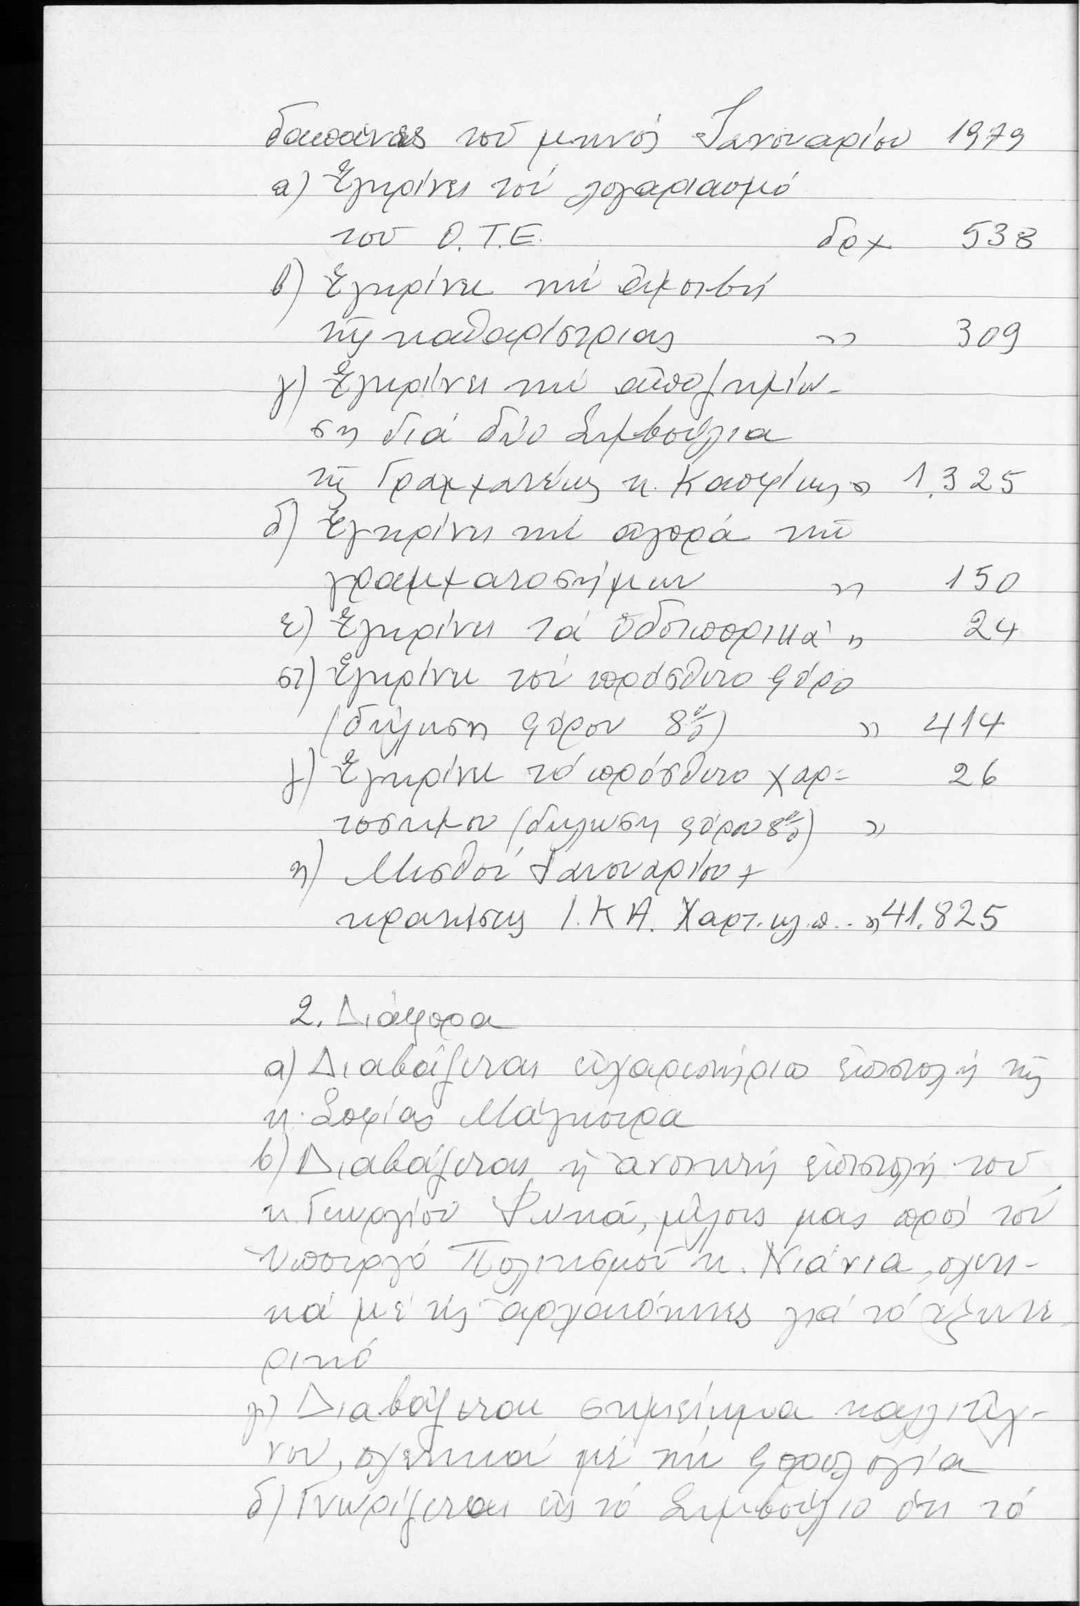 δαπάνες τοῦ μηνός Ἰανουαρίου 1979
α) Ἐγκρίνει τόν λογαριασμό
τοῦ Ο.Τ.Ε. δρχ 538
β) Ἐγκρίνει τήν ἀμοιβή
τῆς καθαρίστριας " 309
γ) Ἐγκρίνει τήν ἀποζημίω-
ση διά δύο Συμβούλια
τῆς Γραμματέως κ. " 1.325
δ) Ἐγκρίνει τήν ἀγορά τῶν
γραμματοσήμων " 150
ε) Ἐγκρίνει τά ὁδοιπορικά " 24
στ) Ἐγκρίνει τόν πρόσθετο φόρο
(δήλωση φόρου 8%) " 414
ζ) Ἐγκρίνει τό πρόσθετο χαρ= 26
τοσημου (δήλωση φόρου 8%) "
η) Μισθοί Ἰανουαρίου +
κρατήσεις Ι.Κ.Α. Χαρτ. κλ.π.. " 41.825
2. Διάφορα
α) Διαβάζεται εὐχαριστήριο ἐπιστολή τῆς
κ. Σοφίας
β) Διαβάζεται ἡ ἀνοικτή ἐπιστολή τοῦ
κ. Γεωργίου μέλους μας πρός τόν
Ὑπουργό Πολιτισμοῦ κ. Νιάνια, σχετι-
κά μέ τίς ἀρχαιότητες γιά τό ἐξωτε-
ρικό
γ) Διαβάζεται σημείωμα καλλιτέχ-
νου, σχετικά μέ τήν φορολογία
δ) Γνωρίζεται εἰς τό Συμβούλιο ὅτι τό